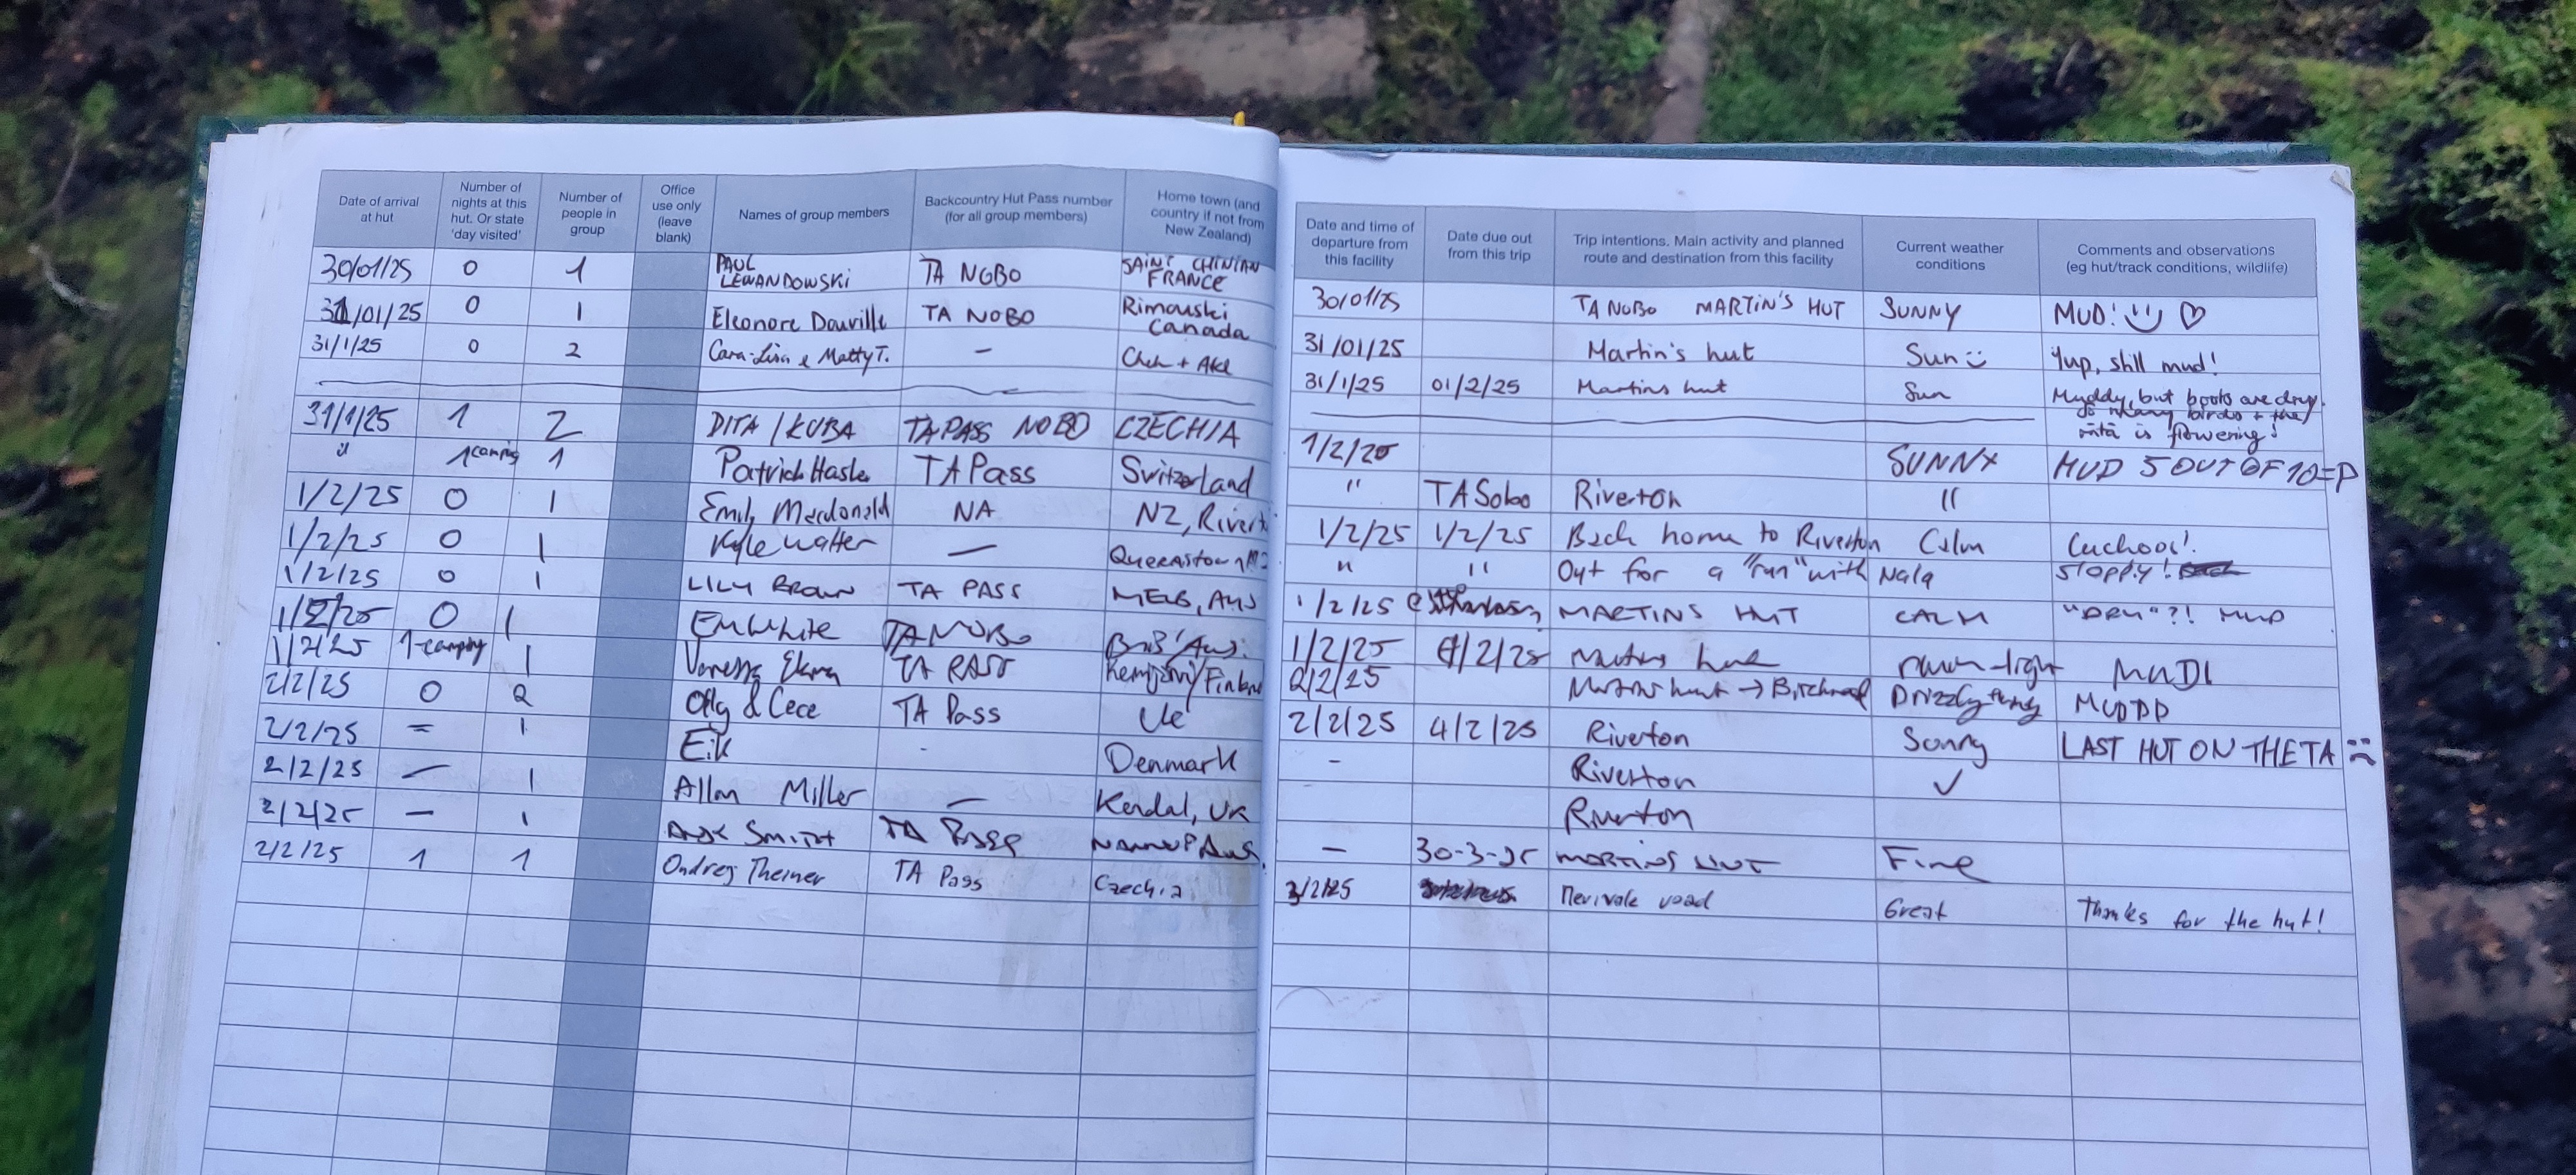 Date of arrival
at hut
Number of
nights at this
hut. Or state
'day visited'
Number of
people in
group
Office
use only
(leave
blank)
Names of group members
Backcountry Hut Pass number
(for all group members)
Home town (and
country if not from
New Zealand)
30/01/25 0 1 PAUL LEWANDOWSKi TA NOBO SAINT CHINIAN FRANCE
31/01/25 0 1 Eleonore Douville TA NOBO Rimouski Canada
31/1/25 0 2 Cara-Lisa & Matty T. - Chch + Akl
31/1/25 1 2 DITA / KUBA TA PASS NOBO CZECHIA
" 1 camping 1 Patrick Hasler TA Pass Switzerland
1/2/25 0 1 Emily Macdonald NA NZ,
1/2/25 0 1 Kyle Walter — Queenstown NZ
1/2/25 0 1 LILY BROWN TA PASS MELB, AUS
1/2/25 0 1 Em White TA NOBO
1/2/25 1-camping 1 Vanessa TA PASS
2/2/25 0 2 Olly & Cece TA Pass UK
2/2/25 = 1 Eik - Denmark
2/2/25 — 1 Allan Miller — Kendal, UK
2/2/25 — 1 TA PASS NANNUP AUS.
2/2/25 1 1 Ondrej Theiner TA Pass Czechia
Date and time of
departure from
this facility
Date due out
from this trip
Trip intentions. Main activity and planned
route and destination from this facility
Current weather
conditions
Comments and observations
(eg hut/track conditions, wildlife)
30/01/25 TA NOBO MARTIN'S HUT SUNNY MUD!
31/01/25 Martin's hut Sun Yup, still mud!
31/1/25 01/2/25 Martins hut Sun Muddy, but boots are dry.
So many birds + the
rātā is flowering!
1/2/25 SUNNY MUD 5 OUT OF 10 =P
" TA Sobo Riverton "
1/2/25 1/2/25 Back home to Riverton Calm Cuckoo!
" " Out for a "run" with Nala sloppy!
1/2/25 MARTINS HUT CALM "DRY"?! MUD
1/2/25 Martins hut MUD!
2/2/25 Martins hut → Drizzly MUDDD
2/2/25 4/2/25 Riverton Sunny LAST HUT ON THE TA
- Riverton ✓
Riverton
— 30-3-25 MARTINS HUT Fine
3/2/25 Merivale road Great Thanks for the hut!